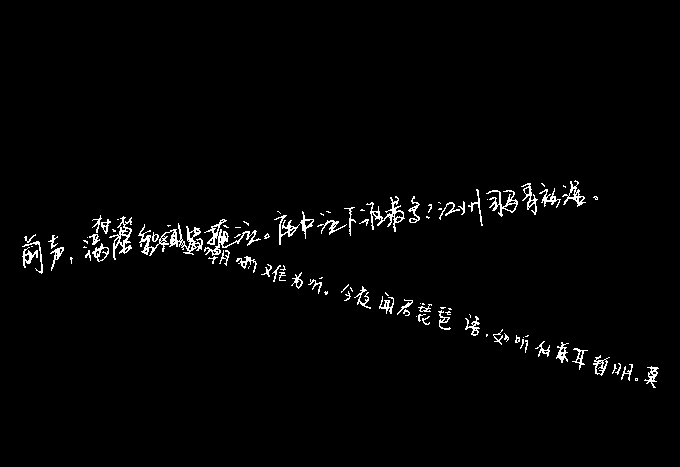 前声,满座重闻皆掩泣。座中泣下谁最多?江州司马青衫湿。
村笛嘲哳难为听。今夜闻君琵琶语,如听仙乐耳暂明。莫